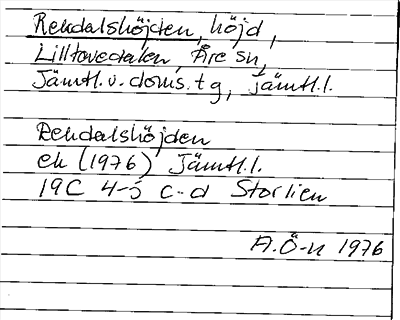 Rekdalshöjden, höjd,
Lilltovedalen, Åre sn,
Jämtl.v.doms.tg, jämtl.l.
Rekdalshöjden
ek (1976) Jämtl.l.
19C 4-5 c-d Storlien
A.Ö-n 1976